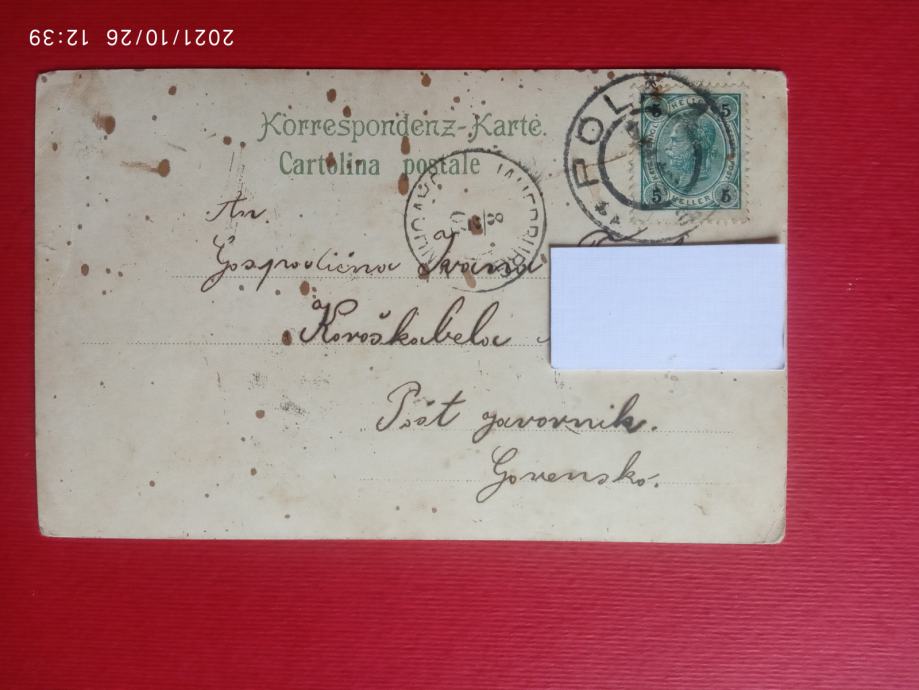 2021/10/26 12:39
Korrespondenz-Karte.
Cartolina postale
POLA
5 HELLER 5
5 HELLER 5
JAUERBURG
An.
Gospodična Ivana
Koroškabela
Pošt Javornik.
Gorensko.